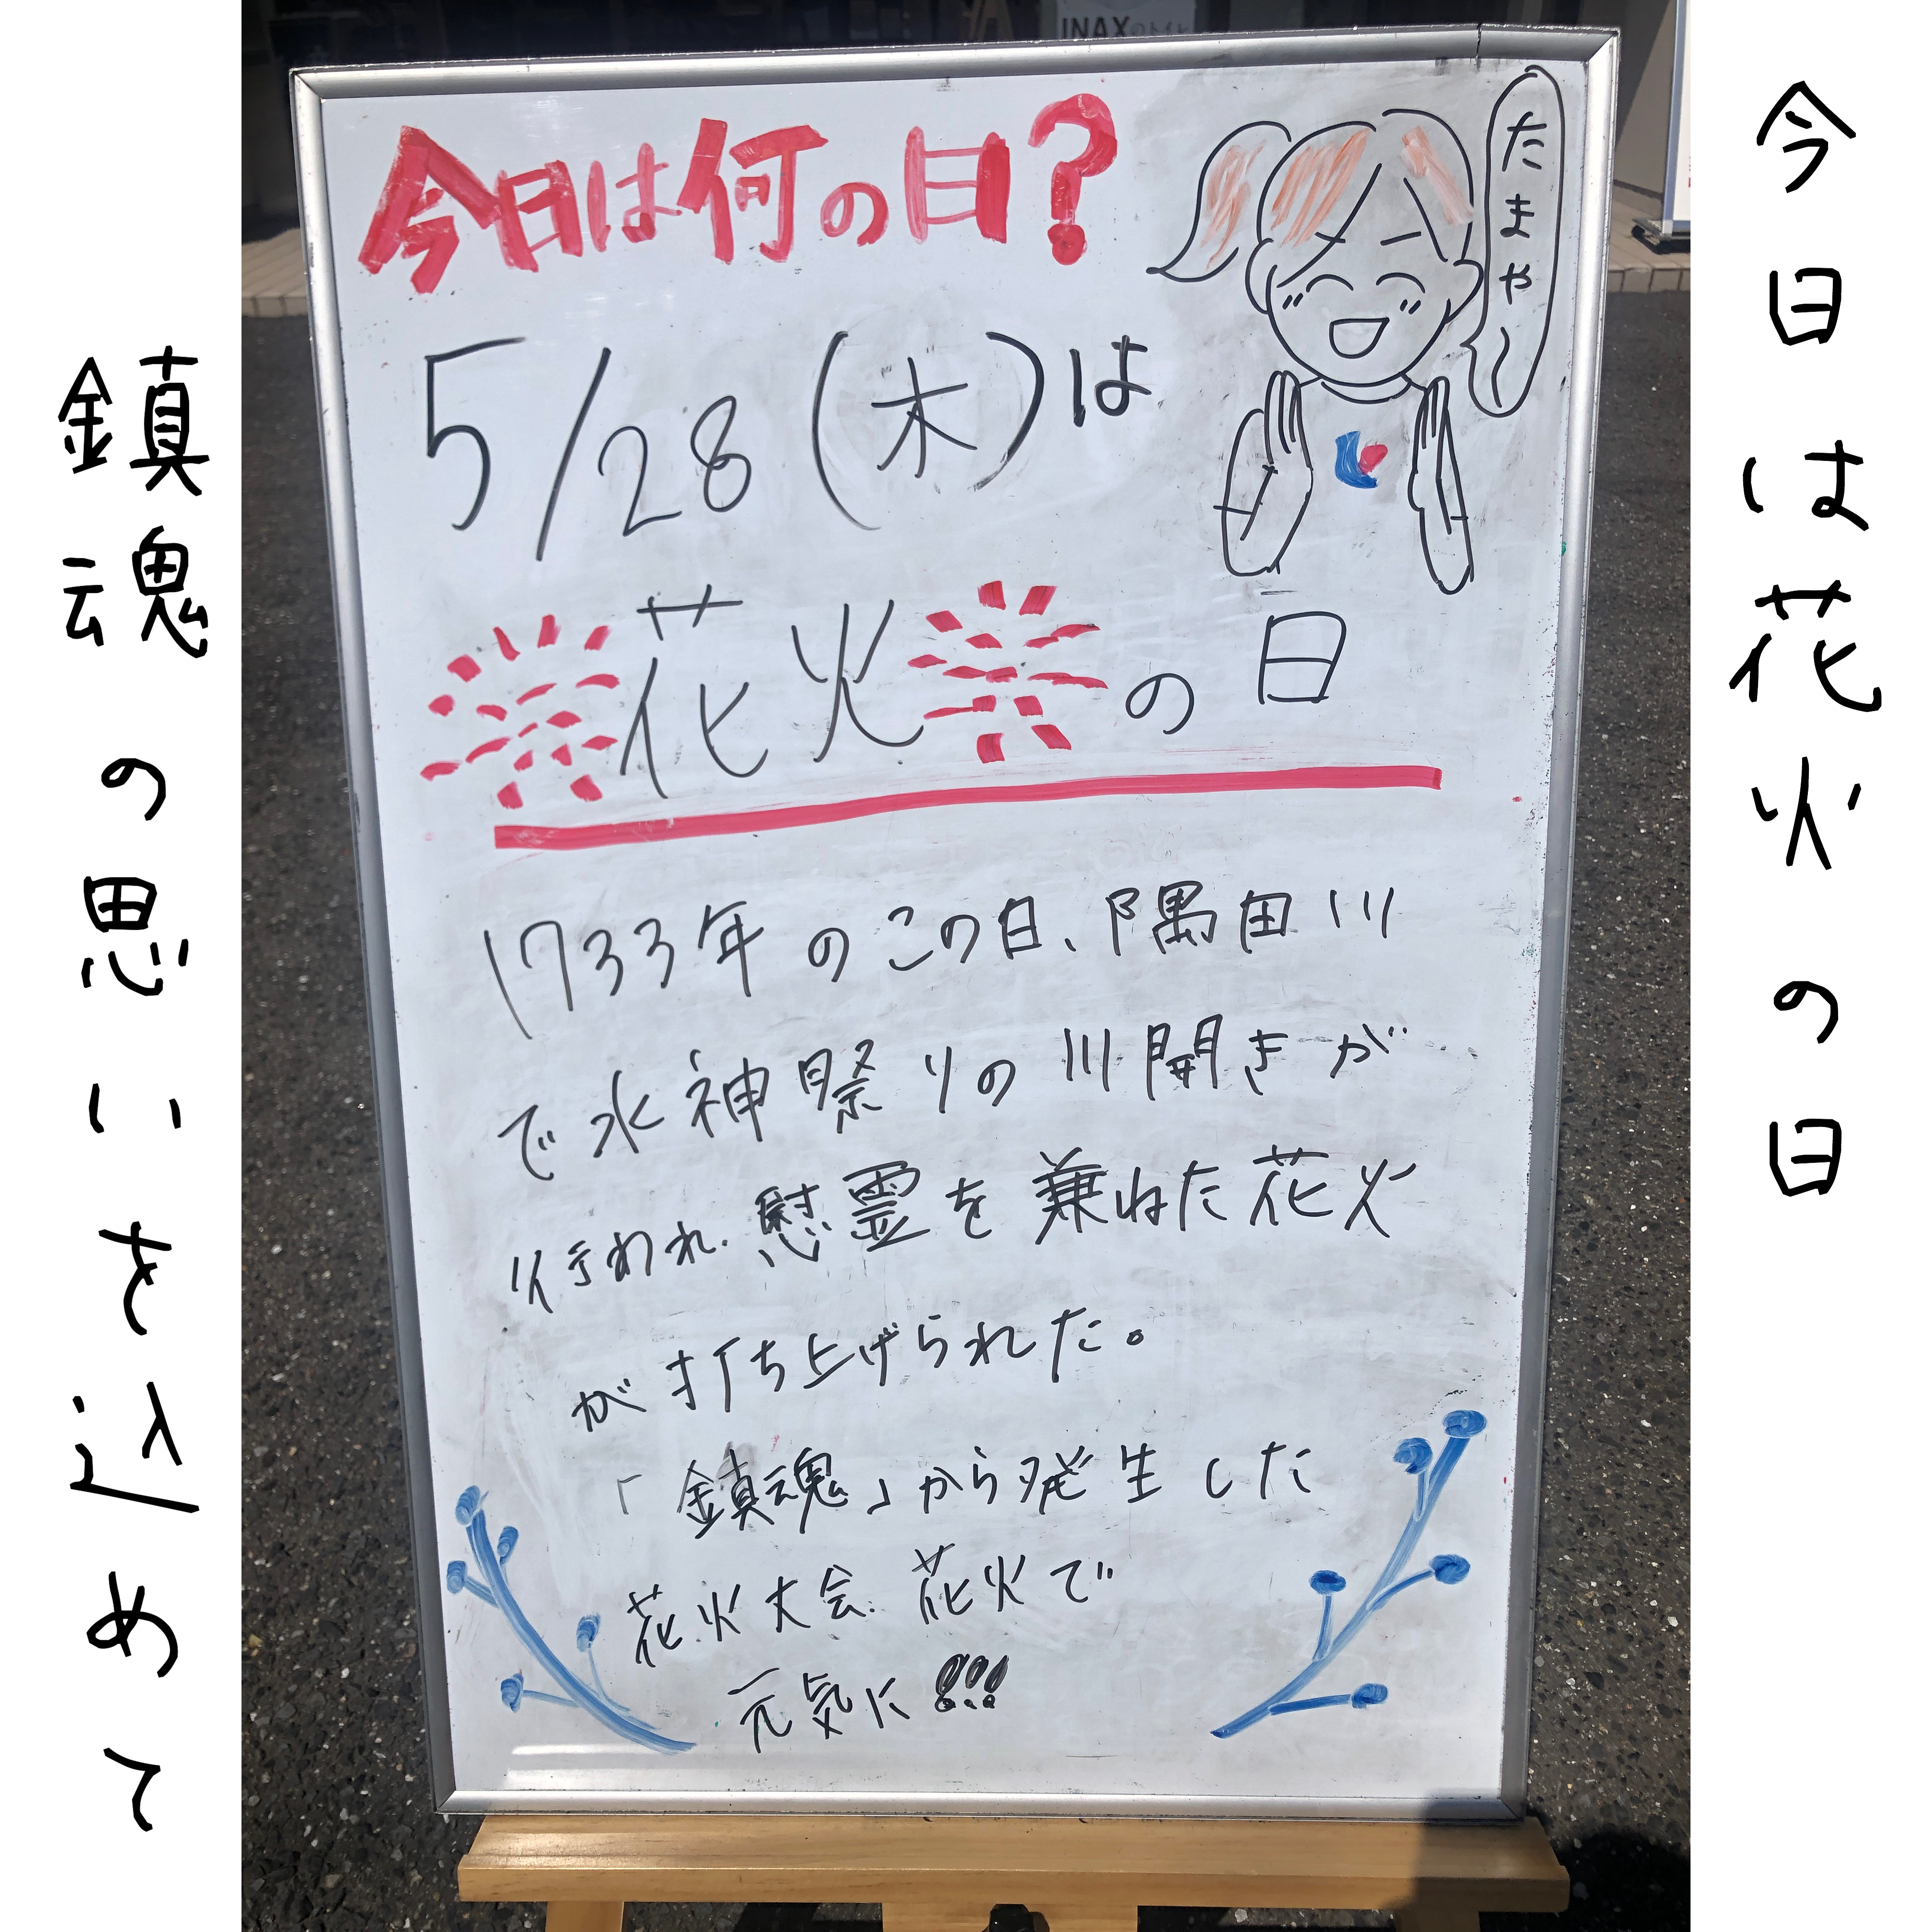 今日は花火の日
INAXのトイレ
今日は何の日?
たまや〜
5/28(木)は
花火の日
1733年のこの日、隅田川
で水神祭りの川開きが
行われ、慰霊を兼ねた花火
が打ち上げられた。
「鎮魂」から発生した
花火大会、花火で
元気に!!!
鎮魂の思いを込めて